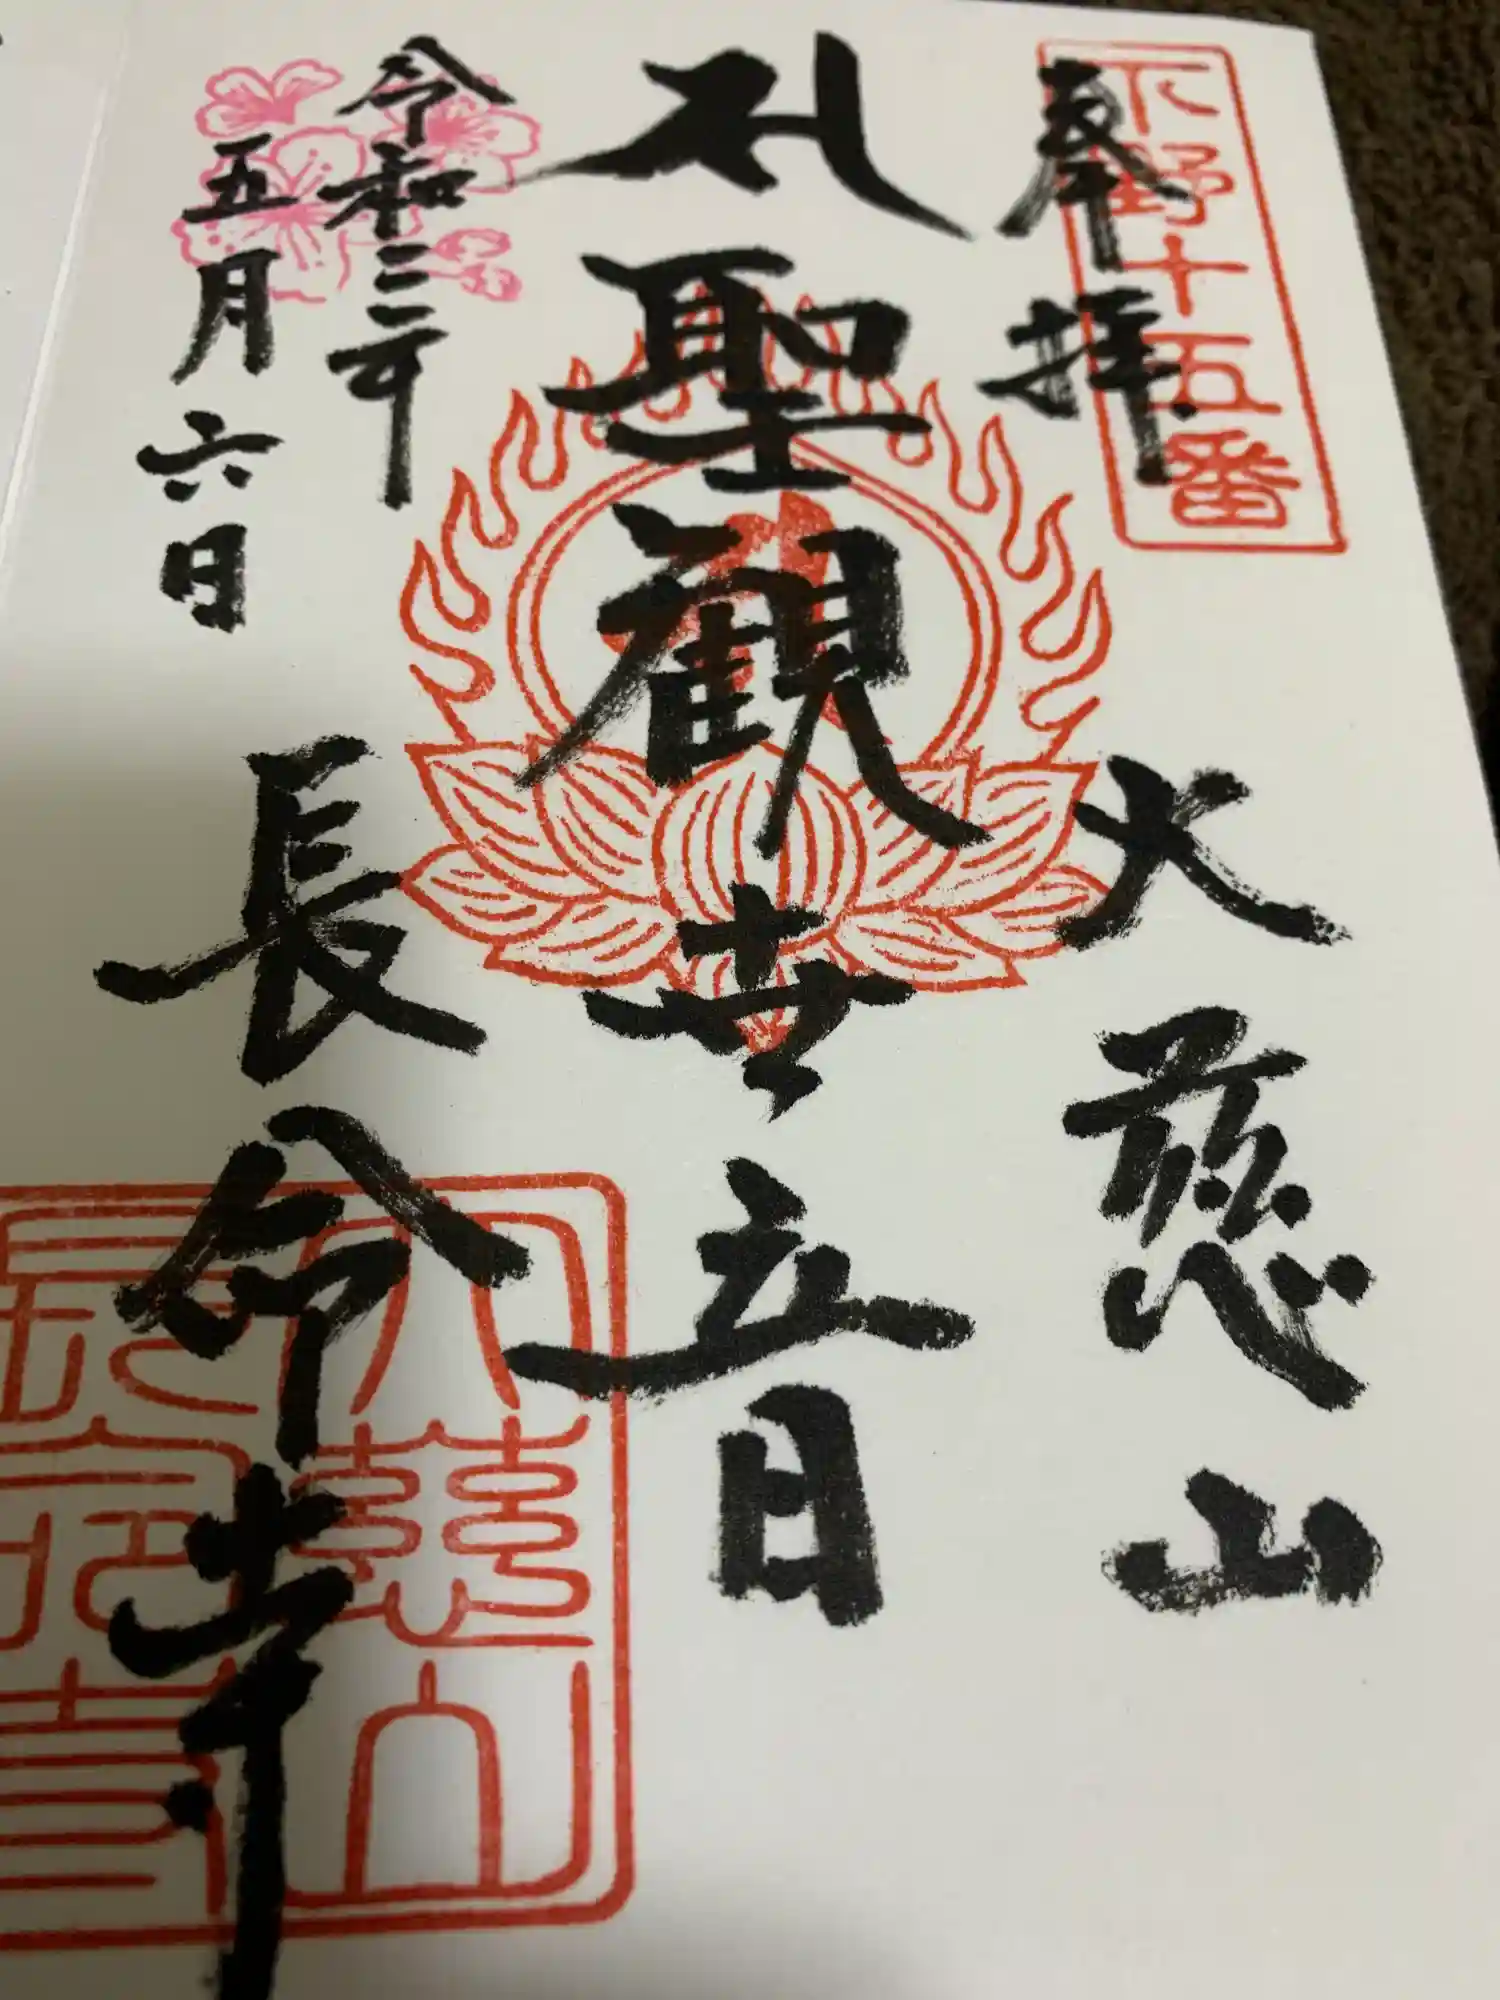 下野十五番
奉拝
大慈山
聖観世音
令和三年
五月六日
長命寺